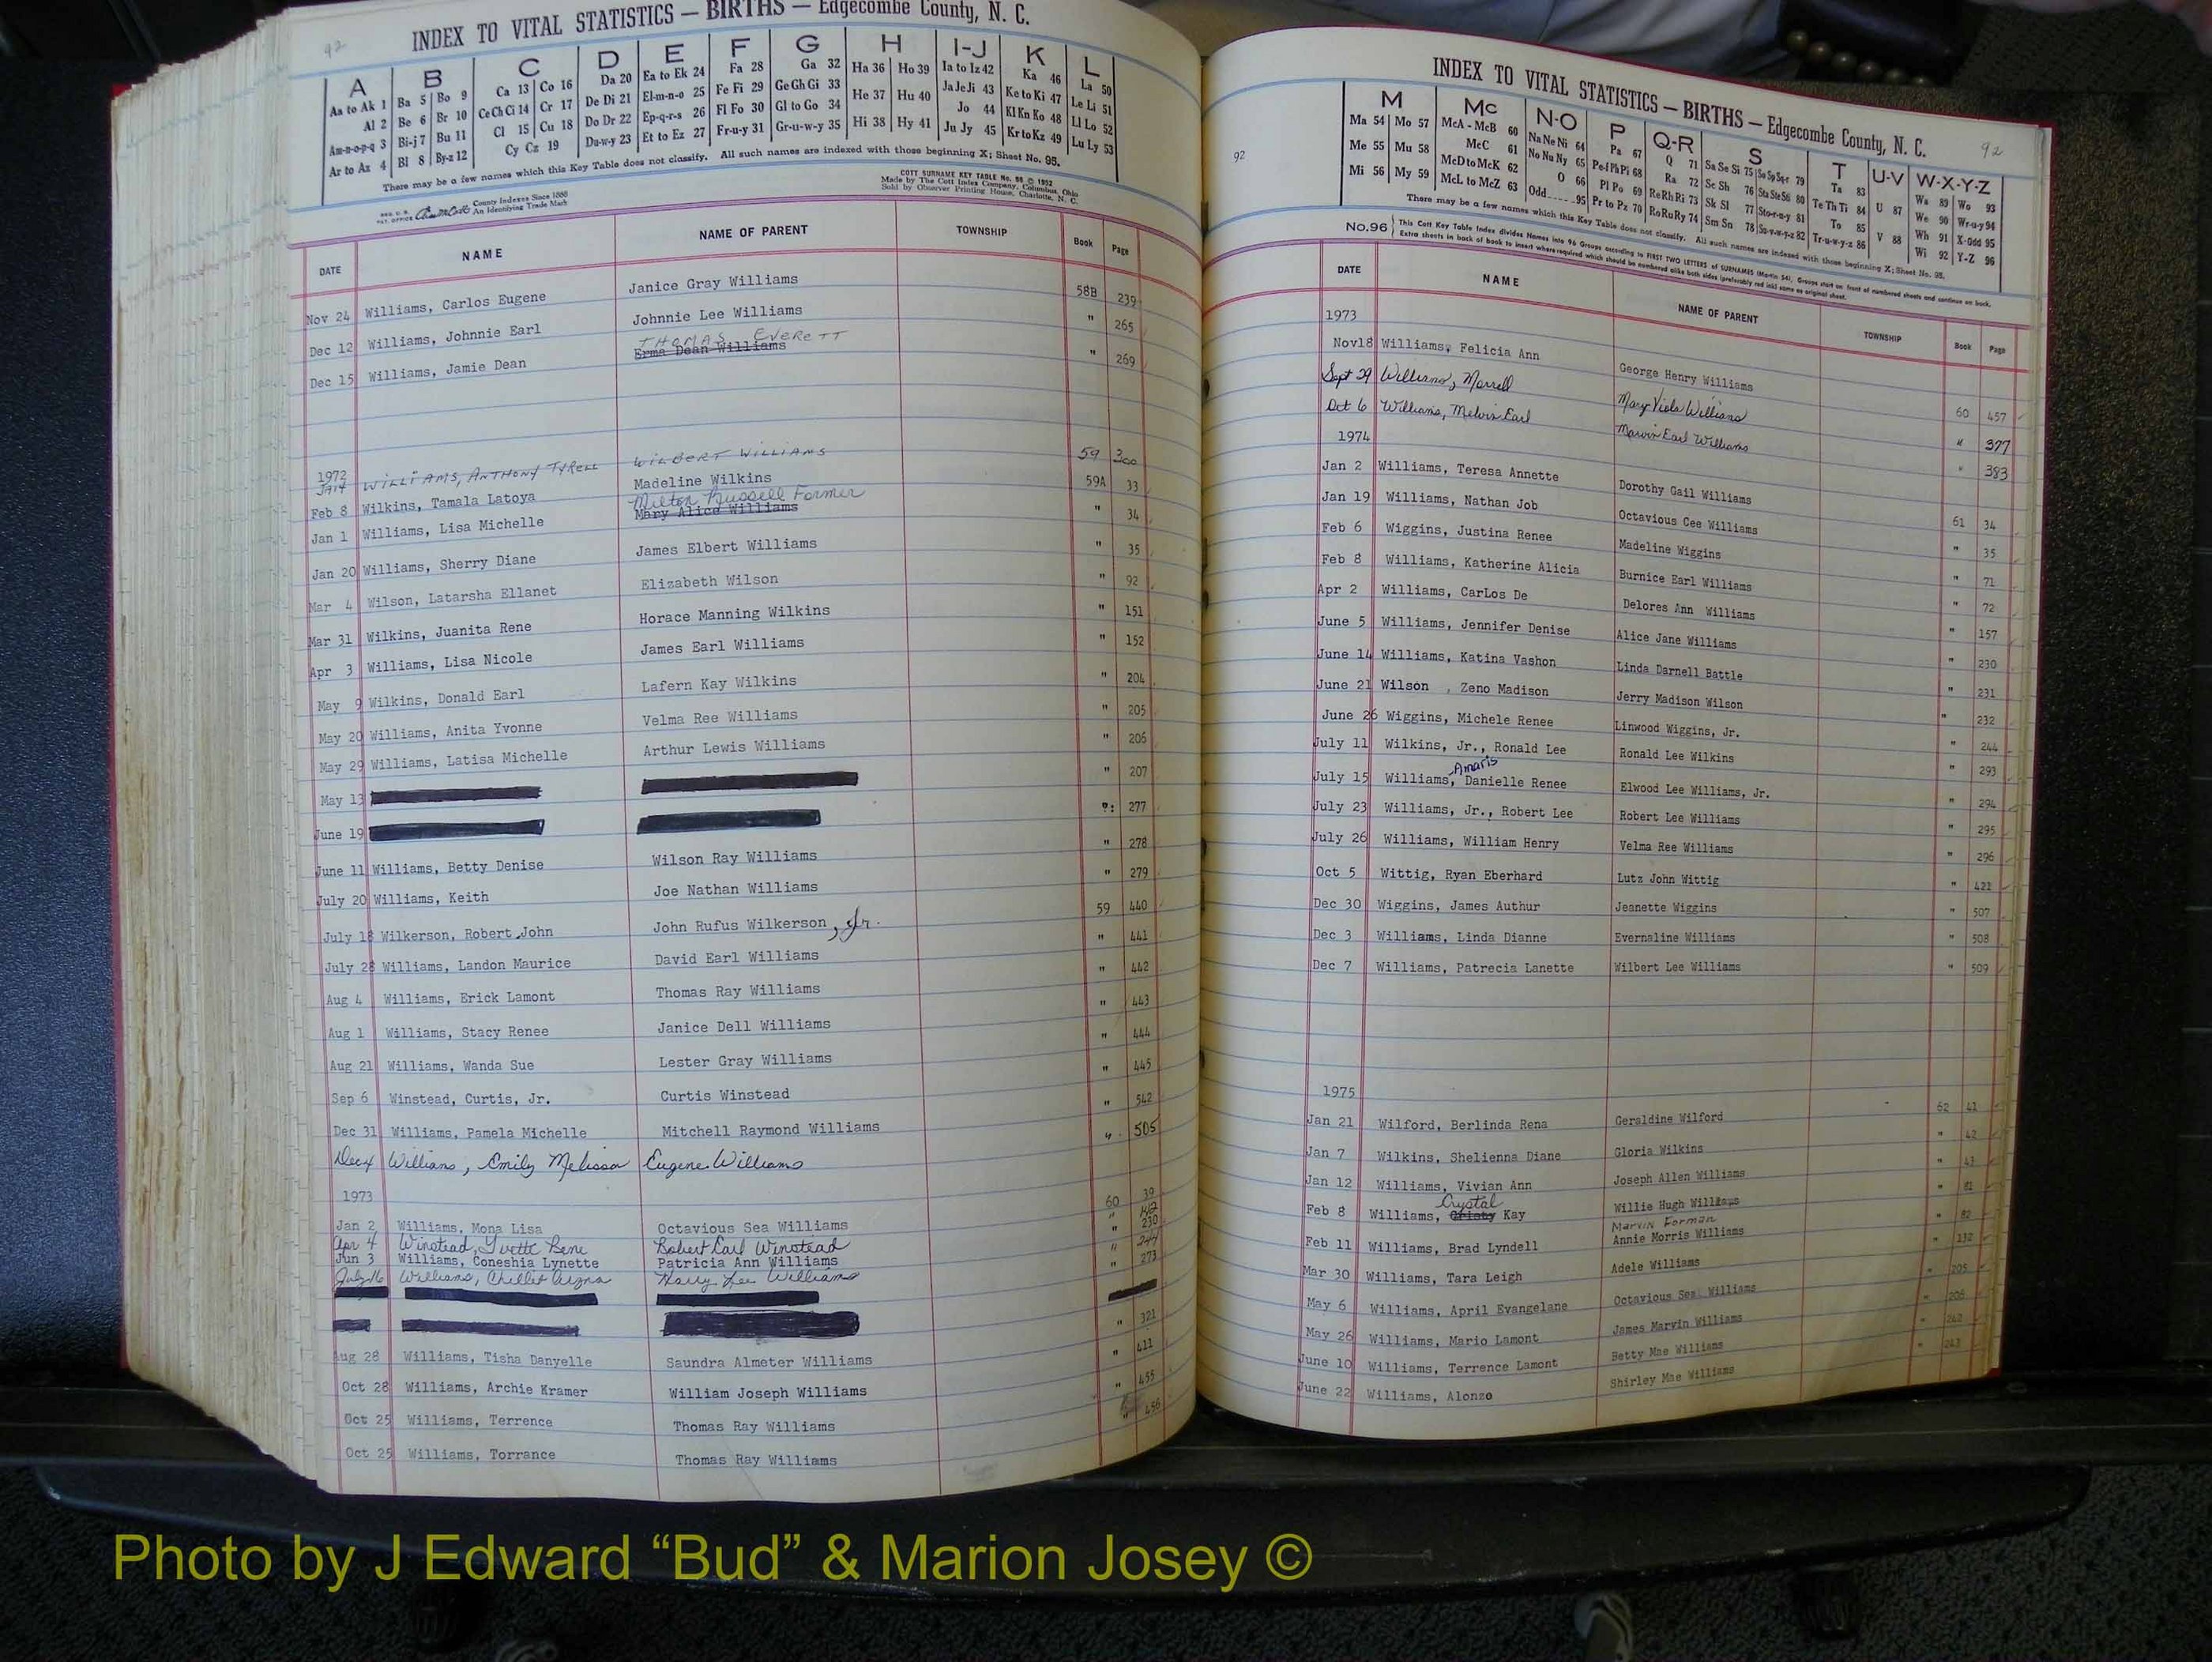 92
INDEX TO VITAL STATISTICS — BIRTHS — Edgecombe County, N. C.
A B C D E F G H I-J K L
Aa to Ak 1 Ba 5 Bo 9 Ca 13 Co 16 Da 20 Ea to Ek 24 Fa 28 Ga 32 Ha 36 Ho 39 Ia to Iz 42 Ka 46 La 50
Al 2 Be 6 Br 10 Ce Ch Ci 14 Cr 17 De Di 21 El-m-n-o 25 Fe Fi 29 Ge Gh Gi 33 He 37 Hu 40 Ja Je Ji 43 Ke to Ki 47 Le Li 51
Am-n-o-p-q 3 Bi-j 7 Bu 11 Cl 15 Cu 18 Do Dr 22 Ep-q-r-s 26 Fl Fo 30 Gl to Go 34 Hi 38 Hy 41 Jo 44 Kl Kn Ko 48 Ll Lo 52
Ar to Az 4 Bl 8 By-z 12 Cy Cz 19 Du-w-y 23 Et to Ez 27 Fr-u-y 31 Gr-u-w-y 35 Ju Jy 45 Kr to Kz 49 Lu Ly 53
There may be a few names which this Key Table does not classify. All such names are indexed with those beginning X; Sheet No. 95.
County Indexes Since 1888
An Identifying Trade Mark
COTT SURNAME KEY TABLE No. 96 © 1952
Made by The Cott Index Company, Columbus, Ohio
Sold by Observer Printing House, Charlotte, N. C.
DATE NAME NAME OF PARENT TOWNSHIP Book Page
Nov 24 Williams, Carlos Eugene Janice Gray Williams 58B 239
Dec 12 Williams, Johnnie Earl Johnnie Lee Williams " 265
THOMAS EVERETT
Dec 15 Williams, Jamie Dean Erma Dean Williams " 269
1972
WILLIAMS, ANTHONY TYRELL WILBERT WILLIAMS 59 300
Feb 8 Wilkins, Tamala Latoya Madeline Wilkins 59A 33
Milton Russell Farmer
Jan 1 Williams, Lisa Michelle Mary Alice Williams " 34
Jan 20 Williams, Sherry Diane James Elbert Williams " 35
Mar 4 Wilson, Latarsha Ellanet Elizabeth Wilson " 92
Mar 31 Wilkins, Juanita Rene Horace Manning Wilkins " 151
Apr 3 Williams, Lisa Nicole James Earl Williams " 152
May 9 Wilkins, Donald Earl Lafern Kay Wilkins " 204
May 20 Williams, Anita Yvonne Velma Ree Williams " 205
May 29 Williams, Latisa Michelle Arthur Lewis Williams " 206
May 13 " 207
June 19 277
June 11 Williams, Betty Denise Wilson Ray Williams " 278
July 20 Williams, Keith Joe Nathan Williams " 279
July 18 Wilkerson, Robert John John Rufus Wilkerson, Jr. 59 440
July 28 Williams, Landon Maurice David Earl Williams " 441
Aug 4 Williams, Erick Lamont Thomas Ray Williams " 442
Aug 1 Williams, Stacy Renee Janice Dell Williams " 443
Aug 21 Williams, Wanda Sue Lester Gray Williams " 444
Sep 6 Winstead, Curtis, Jr. Curtis Winstead " 445
Dec 31 Williams, Pamela Michelle Mitchell Raymond Williams " 542
Dec 4 Williams, Emily Melissa Eugene Williams " 505
1973
Jan 2 Williams, Mona Lisa Octavious Sea Williams 60 39
Apr 4 Winstead, Yvette Rene Robert Earl Winstead "
Jun 3 Williams, Coneshia Lynette Patricia Ann Williams " 230
July 16 Williams, Harry Lee Williams "
273
" 321
Aug 28 Williams, Tisha Danyelle Saundra Almeter Williams " 411
Oct 28 Williams, Archie Kramer William Joseph Williams " 455
Oct 25 Williams, Terrence Thomas Ray Williams " 456
Oct 25 Williams, Torrance Thomas Ray Williams
INDEX TO VITAL STATISTICS — BIRTHS — Edgecombe County, N. C.
92
92
M Mc N-O P Q-R S T U-V W-X-Y-Z
Ma 54 Mo 57 McA - McB 60 Na Ne Ni 64 Pa 67 Q 71 Sa Se Si 75 So Sp Sq-r 79 Ta 83 U 87 Wa 89 Wo 93
Me 55 Mu 58 McC 61 No Nu Ny 65 Pe-f Ph Pi 68 Ra 72 Sc Sh 76 Sta Ste Sti 80 Te Th Ti 84 V 88 We 90 Wr-u-y 94
Mi 56 My 59 McD to McK 62 O 66 Pl Po 69 Re Rh Ri 73 Sk Sl 77 Sto-r-u-y 81 To 85 Wh 91 X-Odd 95
McL to McZ 63 Odd 95 Pr to Pz 70 Ro Ru Ry 74 Sm Sn 78 Su-v-w-y-z 82 Tr-u-w-y-z 86 Wi 92 Y-Z 96
There may be a few names which this Key Table does not classify. All such names are indexed with those beginning X; Sheet No. 95.
No. 96 This Cott Key Table Index divides Names into 96 Groups according to FIRST TWO LETTERS of SURNAMES (Martin 54). Groups start on front of numbered sheets and continue on back.
Extra sheets in back of book to insert where required which should be numbered alike both sides (preferably red ink) same as original sheet.
DATE NAME NAME OF PARENT TOWNSHIP Book Page
1973
Nov18 Williams, Felicia Ann George Henry Williams 60 457
Sept 29 Williams, Marrell Mary Viola Williams " 377
Oct 6 Williams, Melvin Earl Marvin Earl Williams " 383
1974
Jan 2 Williams, Teresa Annette Dorothy Gail Williams 61 34
Jan 19 Williams, Nathan Job Octavious Cee Williams " 35
Feb 6 Wiggins, Justina Renee Madeline Wiggins " 71
Feb 8 Williams, Katherine Alicia Burnice Earl Williams " 72
Apr 2 Williams, CarLos De Delores Ann Williams " 157
June 5 Williams, Jennifer Denise Alice Jane Williams " 230
June 14 Williams, Katina Vashon Linda Darnell Battle " 231
June 21 Wilson , Zeno Madison Jerry Madison Wilson " 232
June 26 Wiggins, Michele Renee Linwood Wiggins, Jr. " 244
July 11 Wilkins, Jr., Ronald Lee Ronald Lee Wilkins " 293
Amaris
July 15 Williams, Danielle Renee Elwood Lee Williams, Jr. " 294
July 23 Williams, Jr., Robert Lee Robert Lee Williams " 295
July 26 Williams, William Henry Velma Ree Williams " 296
Oct 5 Wittig, Ryan Eberhard Lutz John Wittig " 422
Dec 30 Wiggins, James Authur Jeanette Wiggins " 507
Dec 3 Williams, Linda Dianne Evernaline Williams " 508
Dec 7 Williams, Patrecia Lanette Wilbert Lee Williams " 509
1975
Jan 21 Wilford, Berlinda Rena Geraldine Wilford 62 41
Jan 7 Wilkins, Shelienna Diane Gloria Wilkins " 42
Jan 12 Williams, Vivian Ann Joseph Allen Williams " 43
Crystal
Feb 8 Williams, Kay Willie Hugh Williams " 81
Marvin Forman
Feb 11 Williams, Brad Lyndell Annie Morris Williams " 82
Mar 30 Williams, Tara Leigh Adele Williams " 132
May 6 Williams, April Evangelane Octavious Sea Williams " 205
May 26 Williams, Mario Lamont James Marvin Williams " 206
June 10 Williams, Terrence Lamont Betty Mae Williams " 242
June 22 Williams, Alonzo Shirley Mae Williams " 243
Photo by J Edward “Bud” & Marion Josey ©